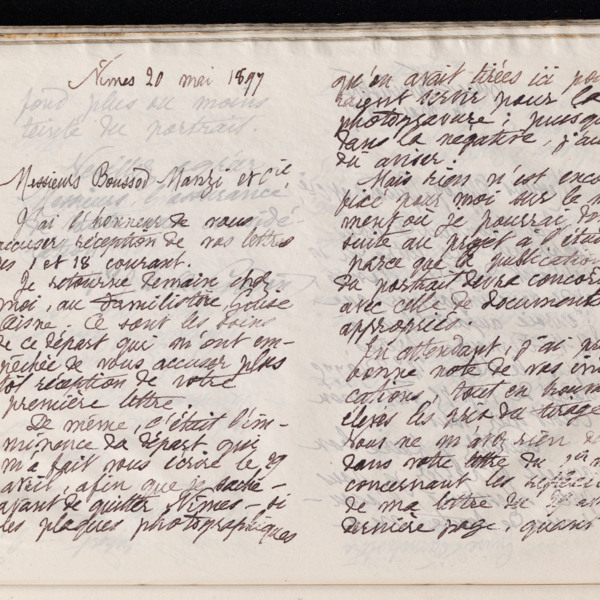 Nîmes 20 mai 1897
fond plus ou moins
teinté du portrait.
Messieurs Boussod Manzi et Cie,
J'ai l'honneur de vous
accuser réception de vos lettres
des 1 et 18 courant.
Je retourne demain chez
moi, au Familistère, Guise
Aisne. Ce sont les soins
de ce départ qui m'ont em-
pêchée de vous accuser plus
tôt réception de votre
première lettre.
De même, c'était l'im-
minence du départ qui
m'a fait vous écrire le 29
avril, afin que je sache -
avant de quitter Nîmes - si
les plaques photographiques
qu'en avait tirées ici pou
raient servir pour la
photogravure ; puisqu
dans la négative, j'au
du aviser.
Mais rien n'est enco
fixé pour moi sur le m
ment où je pourrai do
suite au projet à l'étu
parce que la publication
du portrait devra concor
avec celle de documents
appropriés.
En attendant, j'ai p
bonne note de vos in
cations, tout en trouv
élevés les prix du tirage
vous ne m'avez rien d
dans votre lettre du
concernant les
de ma lettre du 29 av
dernière page, quant